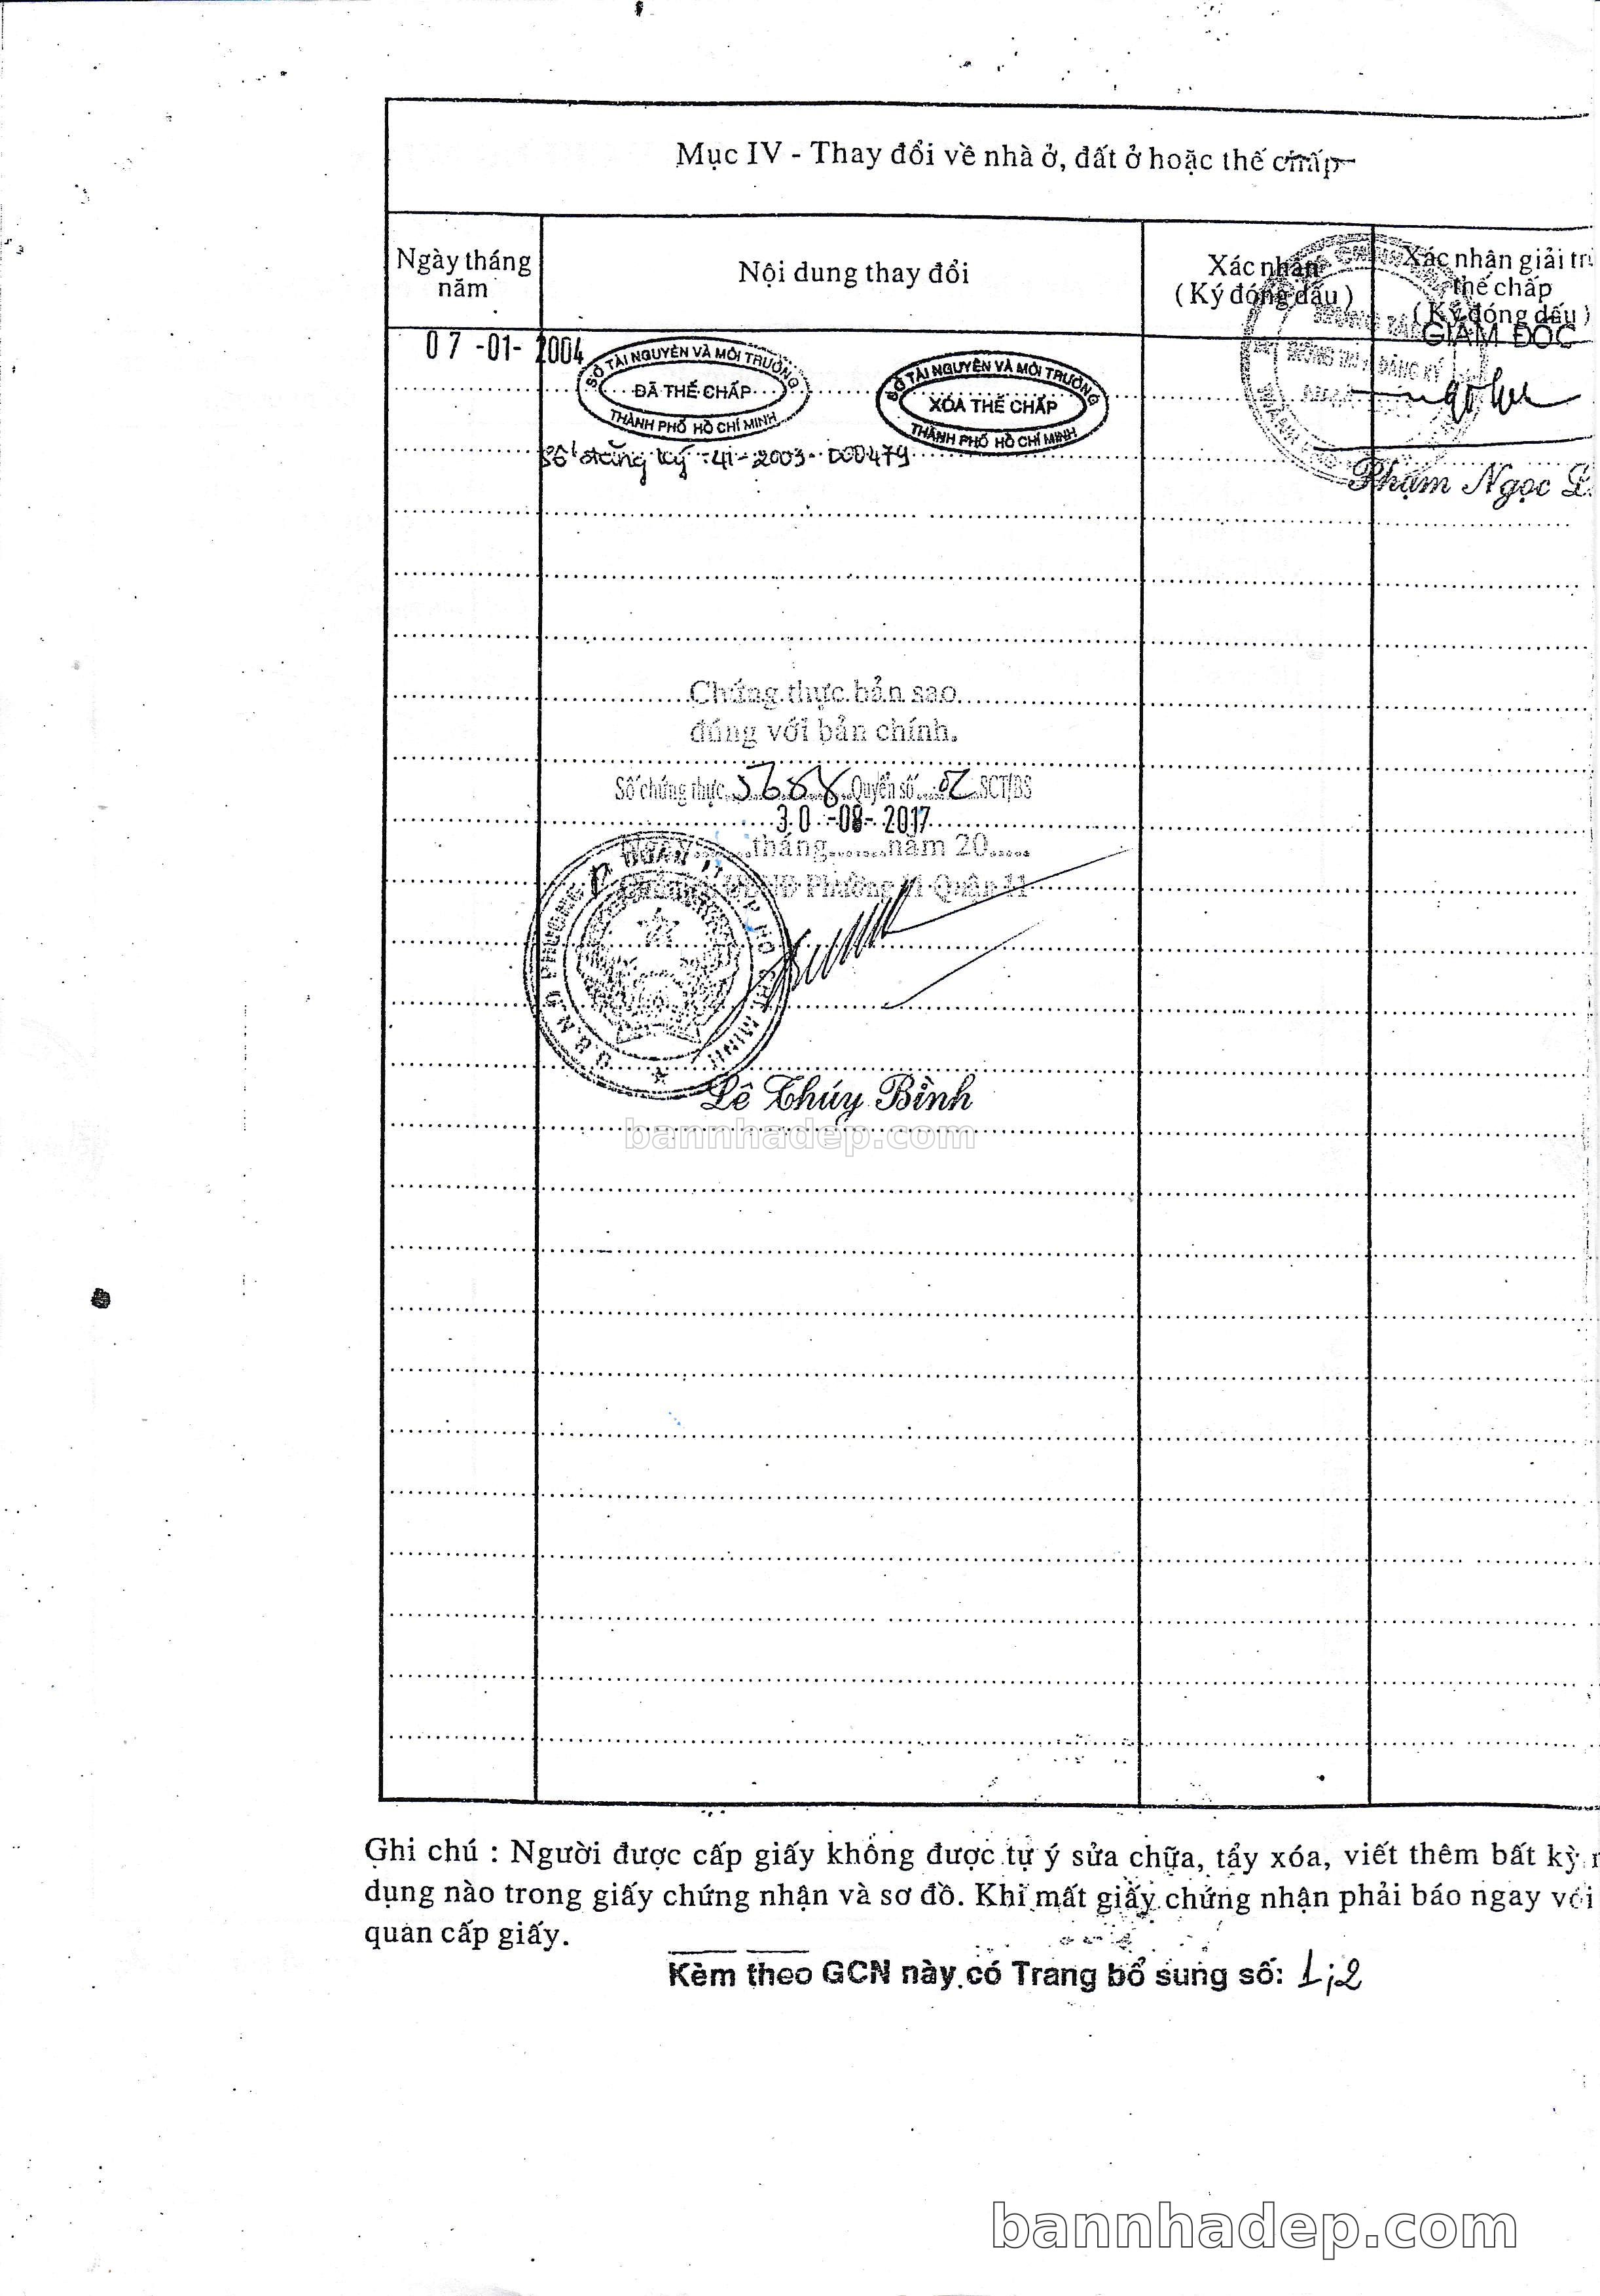 Mục IV - Thay đổi về nhà ở, đất ở hoặc thế chấp
Ngày tháng năm
Nội dung thay đổi
Xác nhận
( Ký đóng dấu )
Xác nhận giải tr
thế chấp
( Ký đóng dấu )
07-01-2004
SỞ TÀI NGUYÊN VÀ MÔI TRƯỜNG
ĐÃ THẾ CHẤP
THÀNH PHỐ HỒ CHÍ MINH
SỞ TÀI NGUYÊN VÀ MÔI TRƯỜNG
XÓA THẾ CHẤP
THÀNH PHỐ HỒ CHÍ MINH
GIÁM ĐỐC
ĐĂNG KÝ
Số đăng ký: 41-2003-000479
Phạm Ngọc L
Chứng thực bản sao
đúng với bản chính.
Số chứng thực 5688 Quyển số 02 SCT/BS
30-08-2017
Ngày......tháng........năm 20.....
UBND Phường 11 Quận 11
U.B.N.D PHƯỜNG 11 QUẬN 11 T.P HỒ CHÍ MINH
Lê Thúy Bình
bannhadep.com
Ghi chú : Người được cấp giấy không được tự ý sửa chữa, tẩy xóa, viết thêm bất kỳ
dụng nào trong giấy chứng nhận và sơ đồ. Khi mất giấy chứng nhận phải báo ngay với
quan cấp giấy.
Kèm theo GCN này có Trang bổ sung số: 1;2
bannhadep.com